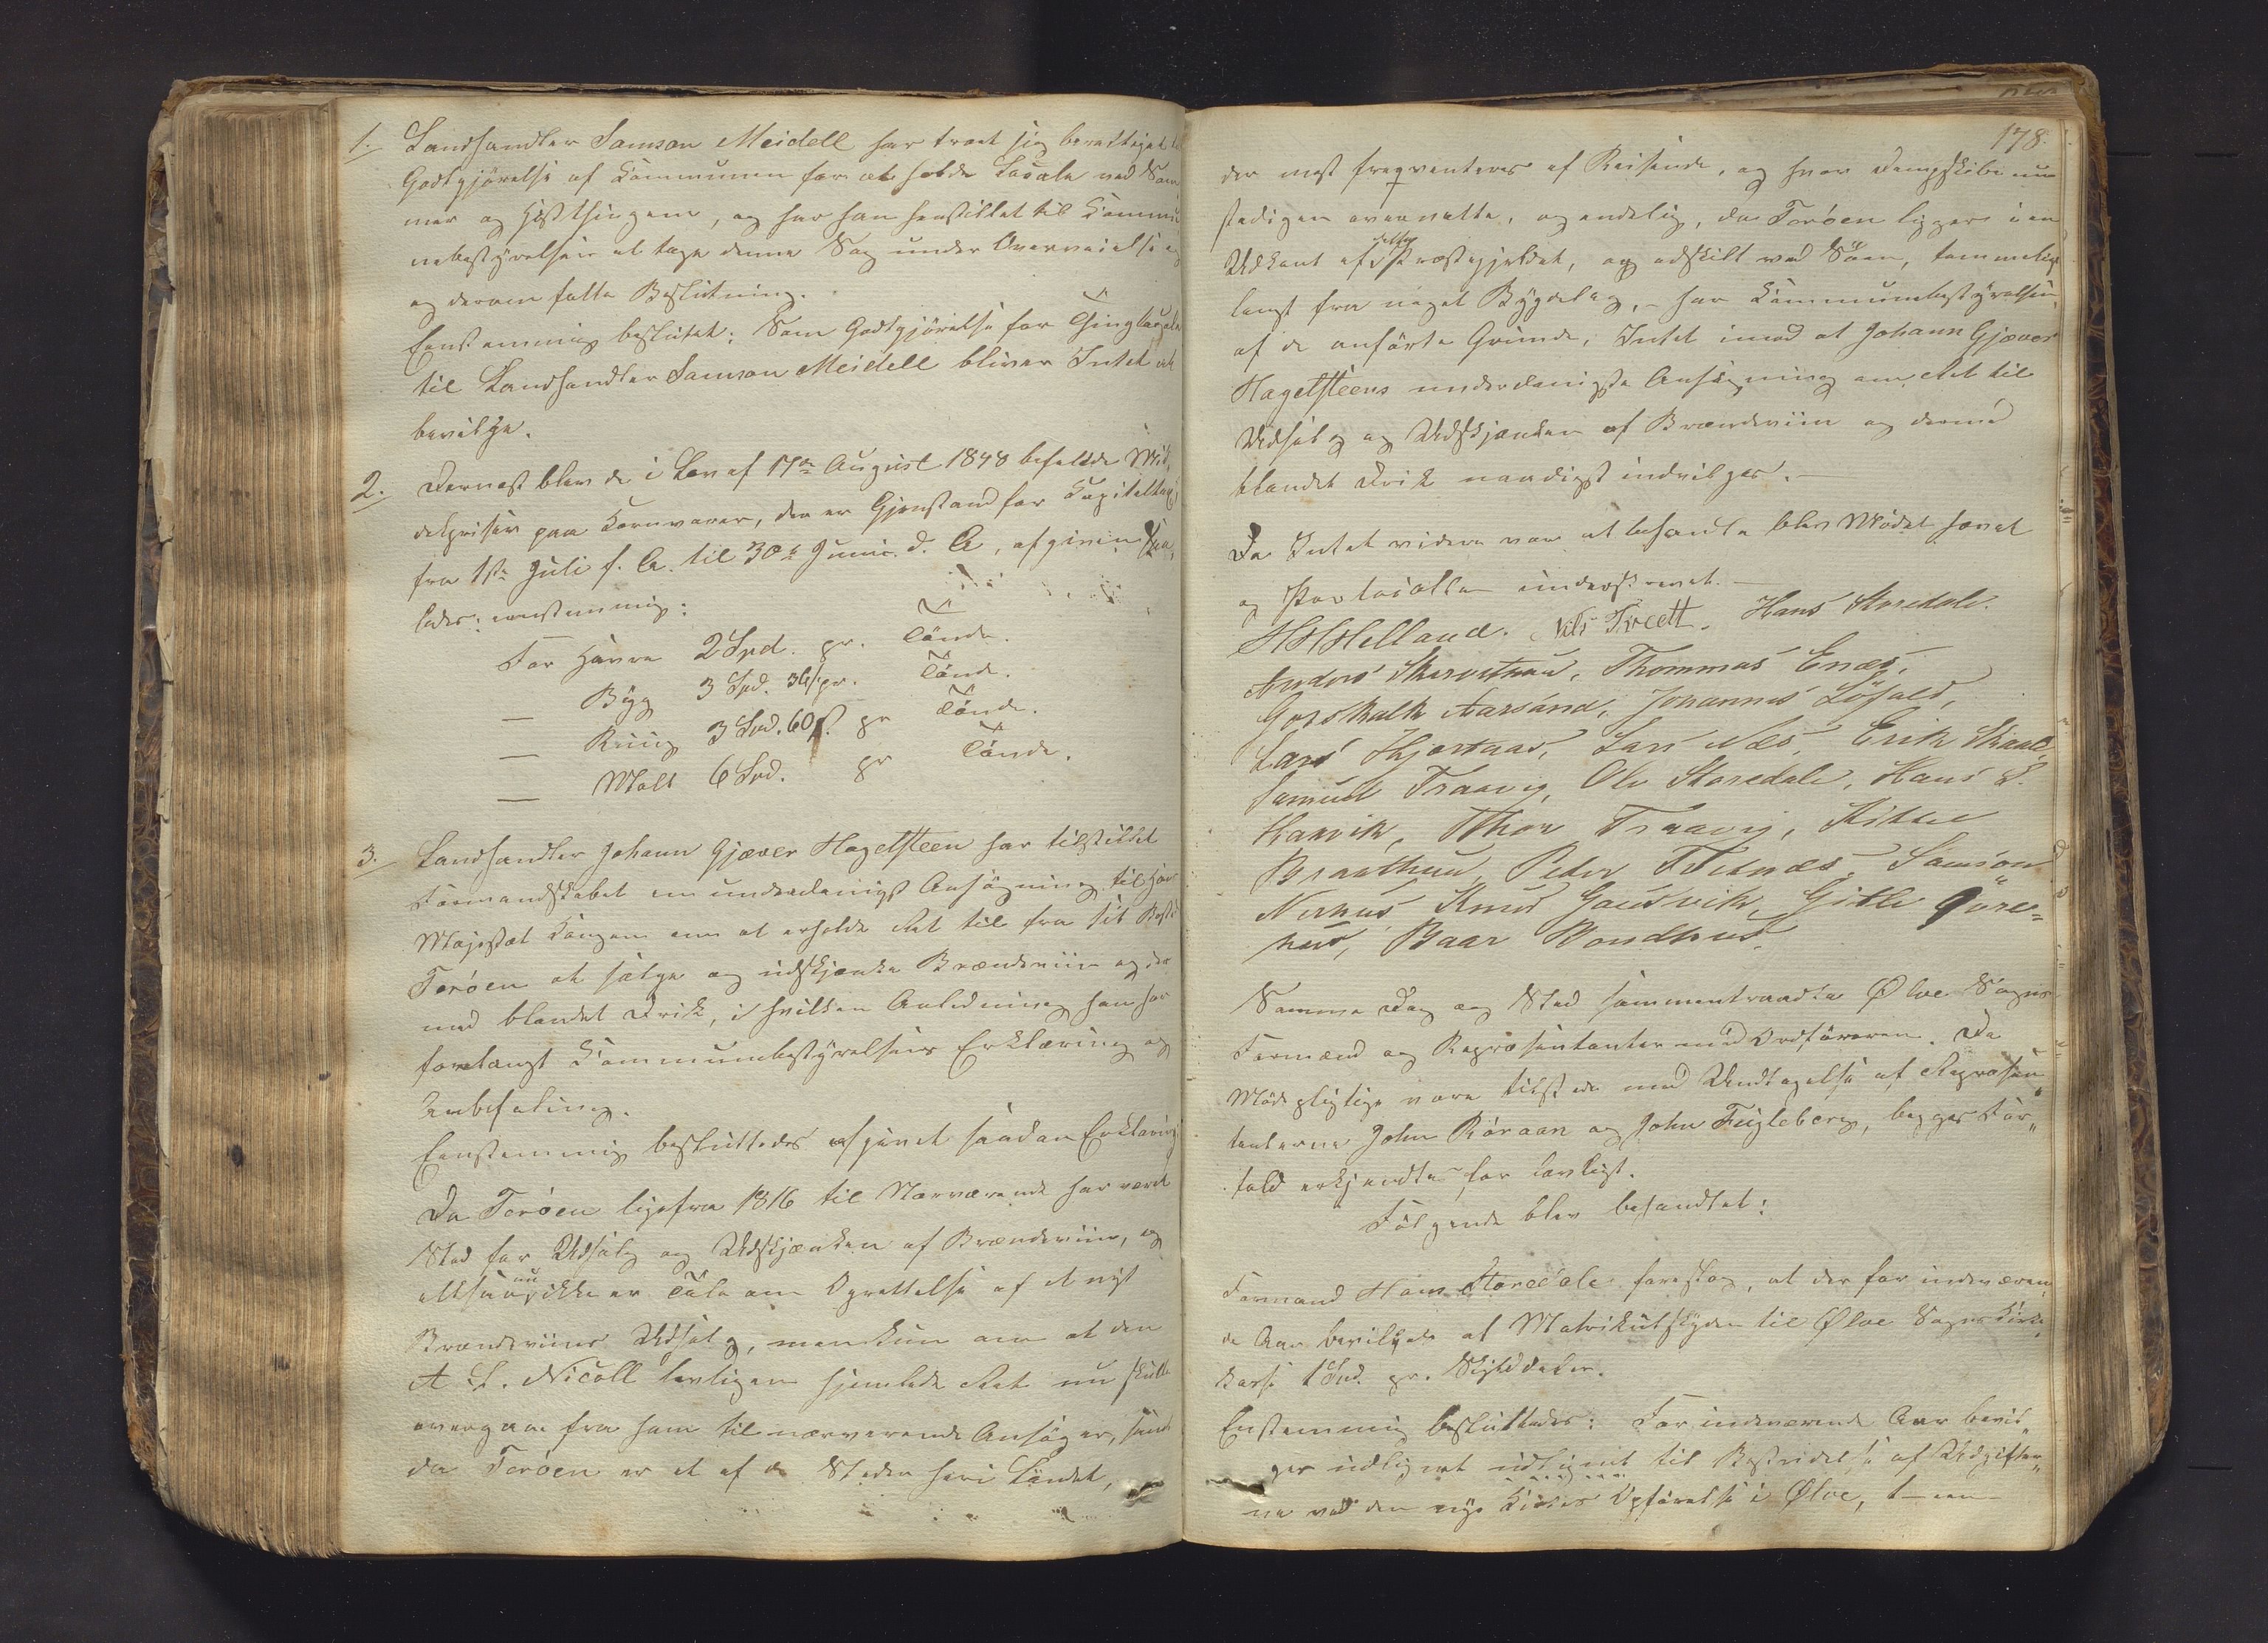 1. Landhandler Samson Meidell har troet sig berettiget til
Godtgjørelse af Kommunen for at holde Locale ved Som-
mer og Høstthingene, og har han henstillet til Kommu-
nebestyrelsen at tage denne Sag under Overveielse og
og derom fatte Beslutning.
Eenstemmig besluttet: Som Godtgjørelse for Thinglocale
til Landhandler Samson Meidell bliver Intet at
bevilge.
2. Dernæst blev de i Lov af 17de August 1848 befalede Mid-
delpriser paa Kornvarer, der er Gjenstand for Kapiteltaxt
fra 1ste Juli f. A. til 30te Juni d. A., afgiven saa-
ledes: eenstemmig:
For Havre 2 Spd. pr. Tønde.
— Byg 3 Spd. 36 ß pr. Tønde.
— Ruug 3 Spd. 60 ß. pr Tønde.
— Malt 6 Spd. pr Tønde.
3. Landhandler Johann Gjæver Hagelsteen har tilstillet
Formandskabet en underdanigst Ansøgning til Hans
Majestæt Kongen om at erholde Ret til fra sit Bosted
Terøen at sælge og udskjænke Brændeviin og der-
med blandet Drik, i hvilken Anledning han har
forlangt Kommunebestyrelsens Erklæring og
Anbefaling.
Eenstemmig besluttedes afgivet saadan Erklæring
Da Terøen ligefra 1816 til Nærværende har været
Sted for Udsalg og Udskjænken af Brændeviin, og
altsaa nu ikke er Tale om Oprettelse af et nyt
Brændeviins Udsalg, men kun om at den
A. L. Nicoll lovligen hjemlede Ret nu skulle
overgaae fra ham til nærværende Ansøger, samt
da Terøen er et af de Steder her i Landet,
178.
der mest freqventeres af Reisende, og hvor Dampskibe nu
stadigen overnatte, og endelig, da Terøen ligger i en
Udkant af dette Præstegjeldet, og adskilt ved Søen, temmelig
langt fra noget Bygdelag, - har Kommunebestyrelsen,
af de anførte Grunde, Intet imod at Johann Gjæver
Hagelsteens underdanigste Ansøgning om Ret til
Udsalg og Udskjænken af Brændeviin og dermed
blandet Drik naadigst indvilges. -
Da Intet videre var at behandle blev Mødet hævet
og Protocollen underskrevet. -
HHHelland. Nils Tvedt. Hans Storedale.
Anders Skarvatun, Thommas Enæs,
Gotskalk Aarsand, Johannes Løfald,
Lars Hjortaas, Lars Næs, Erik Skaale
Samund Traavig, Ole Storedale, Hans L.
Haavik, Thor Traavig, Kittel
Braathun, Peder Teenæs, Samson
Nerhus, Knud Gausvik, Gitle Gore-
hus, Baar Bondhus.
Samme Dag og Sted sammentraadte Ølve Sogns
Formænd og Repræsentanter med Ordføreren. De
Mødepligtige vare tilstede med Undtagelse af Repræsen-
tanterne John Røraaen og John Fugleberg, begges For-
fald erkjendtes for lovligt.
Følgende blev behandlet:
Formand Hans Storedale foreslog, at der for indeværen-
de Aar bevilgedes af Matrikulskylden til Ølve Sogns Kirke-
kasse 1 Spd. pr. Skylddaler.
Enstemmig besluttedes: For indeværende Aar bevil-
ges udlignet udlignet til Bestridelse af Udgifter-
ne ved den nye Kirkes Opførelse i Ølve, 1 - een